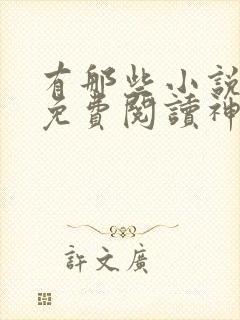 有那些小説
免費閱讀神
許文廣